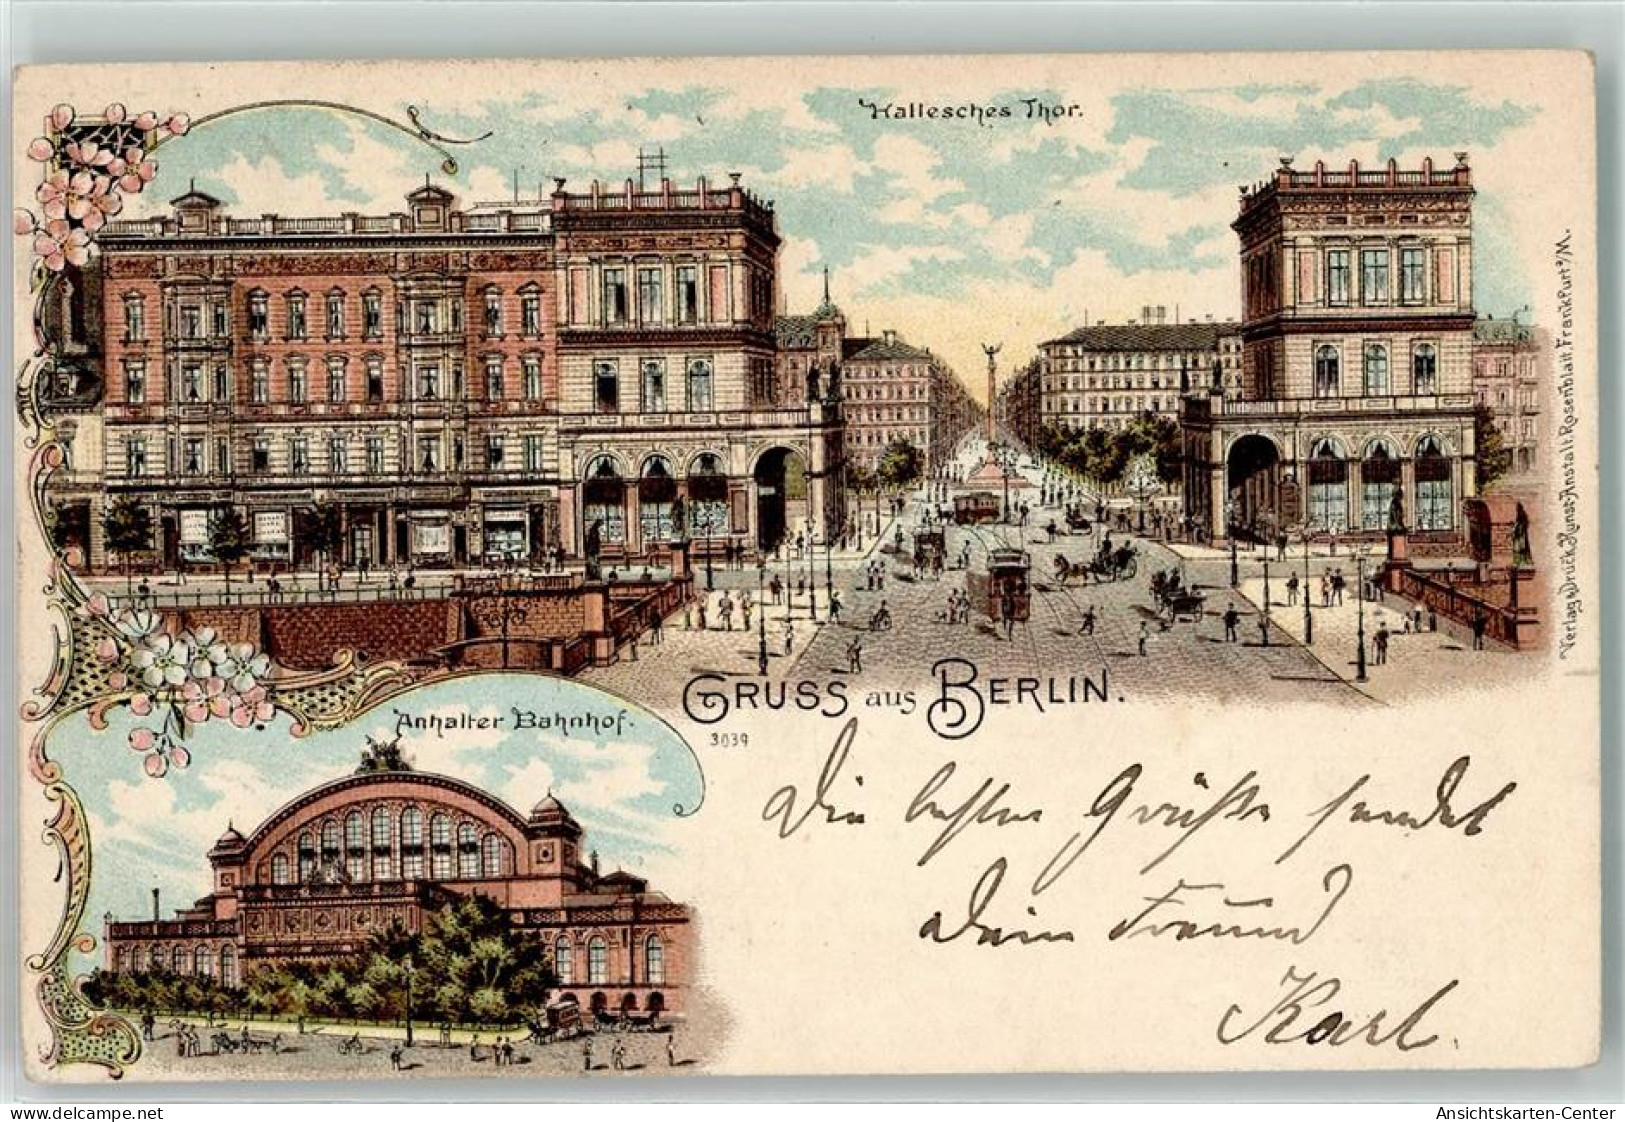 Hallesches Thor.
Verlag u. Druck Kunst-Anstalt Rosenblatt, Frankfurt a/M.
GRUSS aus BERLIN.
3039
Anhalter Bahnhof.
Die besten Grüße sendet
Dein Freund
Karl.
www.delcampe.net
Ansichtskarten-Center